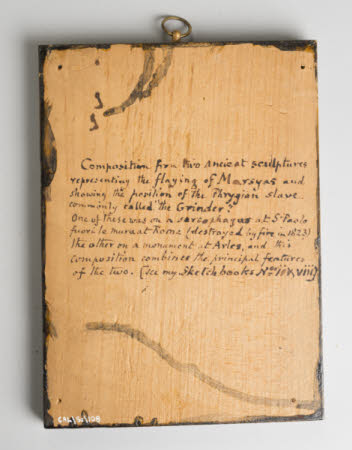 Composition from two ancient sculptures
representing the flaying of Marsyas and
showing the position of the Phrygian slave
commonly called the Grinder.
One of these was on a sarcophagus at St Paolo
fuori le mura at Rome (destroyed by fire in 1823)
the other on a monument at Arles, and this
composition combines the principal features
of the two. (See my Sketchbooks Nos